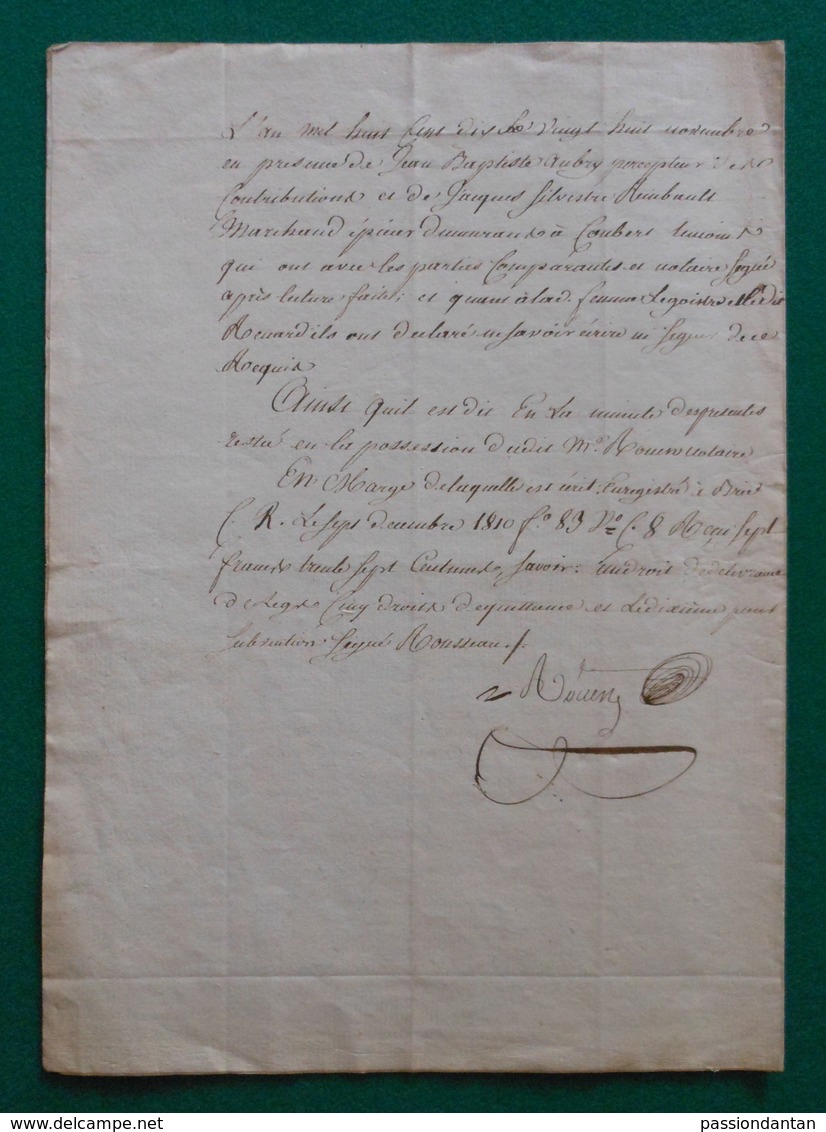 L'an mil huit Cent dix le vingt huit novembre
en presence de Jean Baptiste Aubry percepteur des
Contributions et de Jacques Silvestre Rimbault
Marchand épicier demeurans à Coubert temoins
qui ont avec les parties Comparantes et notaire Signé
après lecture faite; et quant à lad. femme Legoistre
Renard ils ont declaré ne savoir écrire ni signer de ce
Requis
Ainsi quil est dit En La minute des presentes
restée en la possession dudit Me. Rouen notaire
En Marge de laquelle est écrit Enregistré à Brie
C. R. Le sept decembre 1810 fo. 83 Vo. C. 8 Reçu sept
francs trente sept Centimes, savoir: Un droit de delivrance
de Legs Cinq droits de quittance et Ledixième pour
subvention Signé Rousseau./.
Rouen
passiondantan